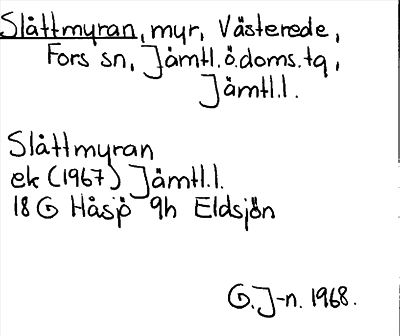 Slåttmyran, myr, Västerede,
Fors sn, Jämtl.ö.doms.tg,
Jämtl.l.
Slåttmyran
ek (1967) Jämtl.l.
18 G Håsjö 9h Eldsjön
G.J-n. 1968.